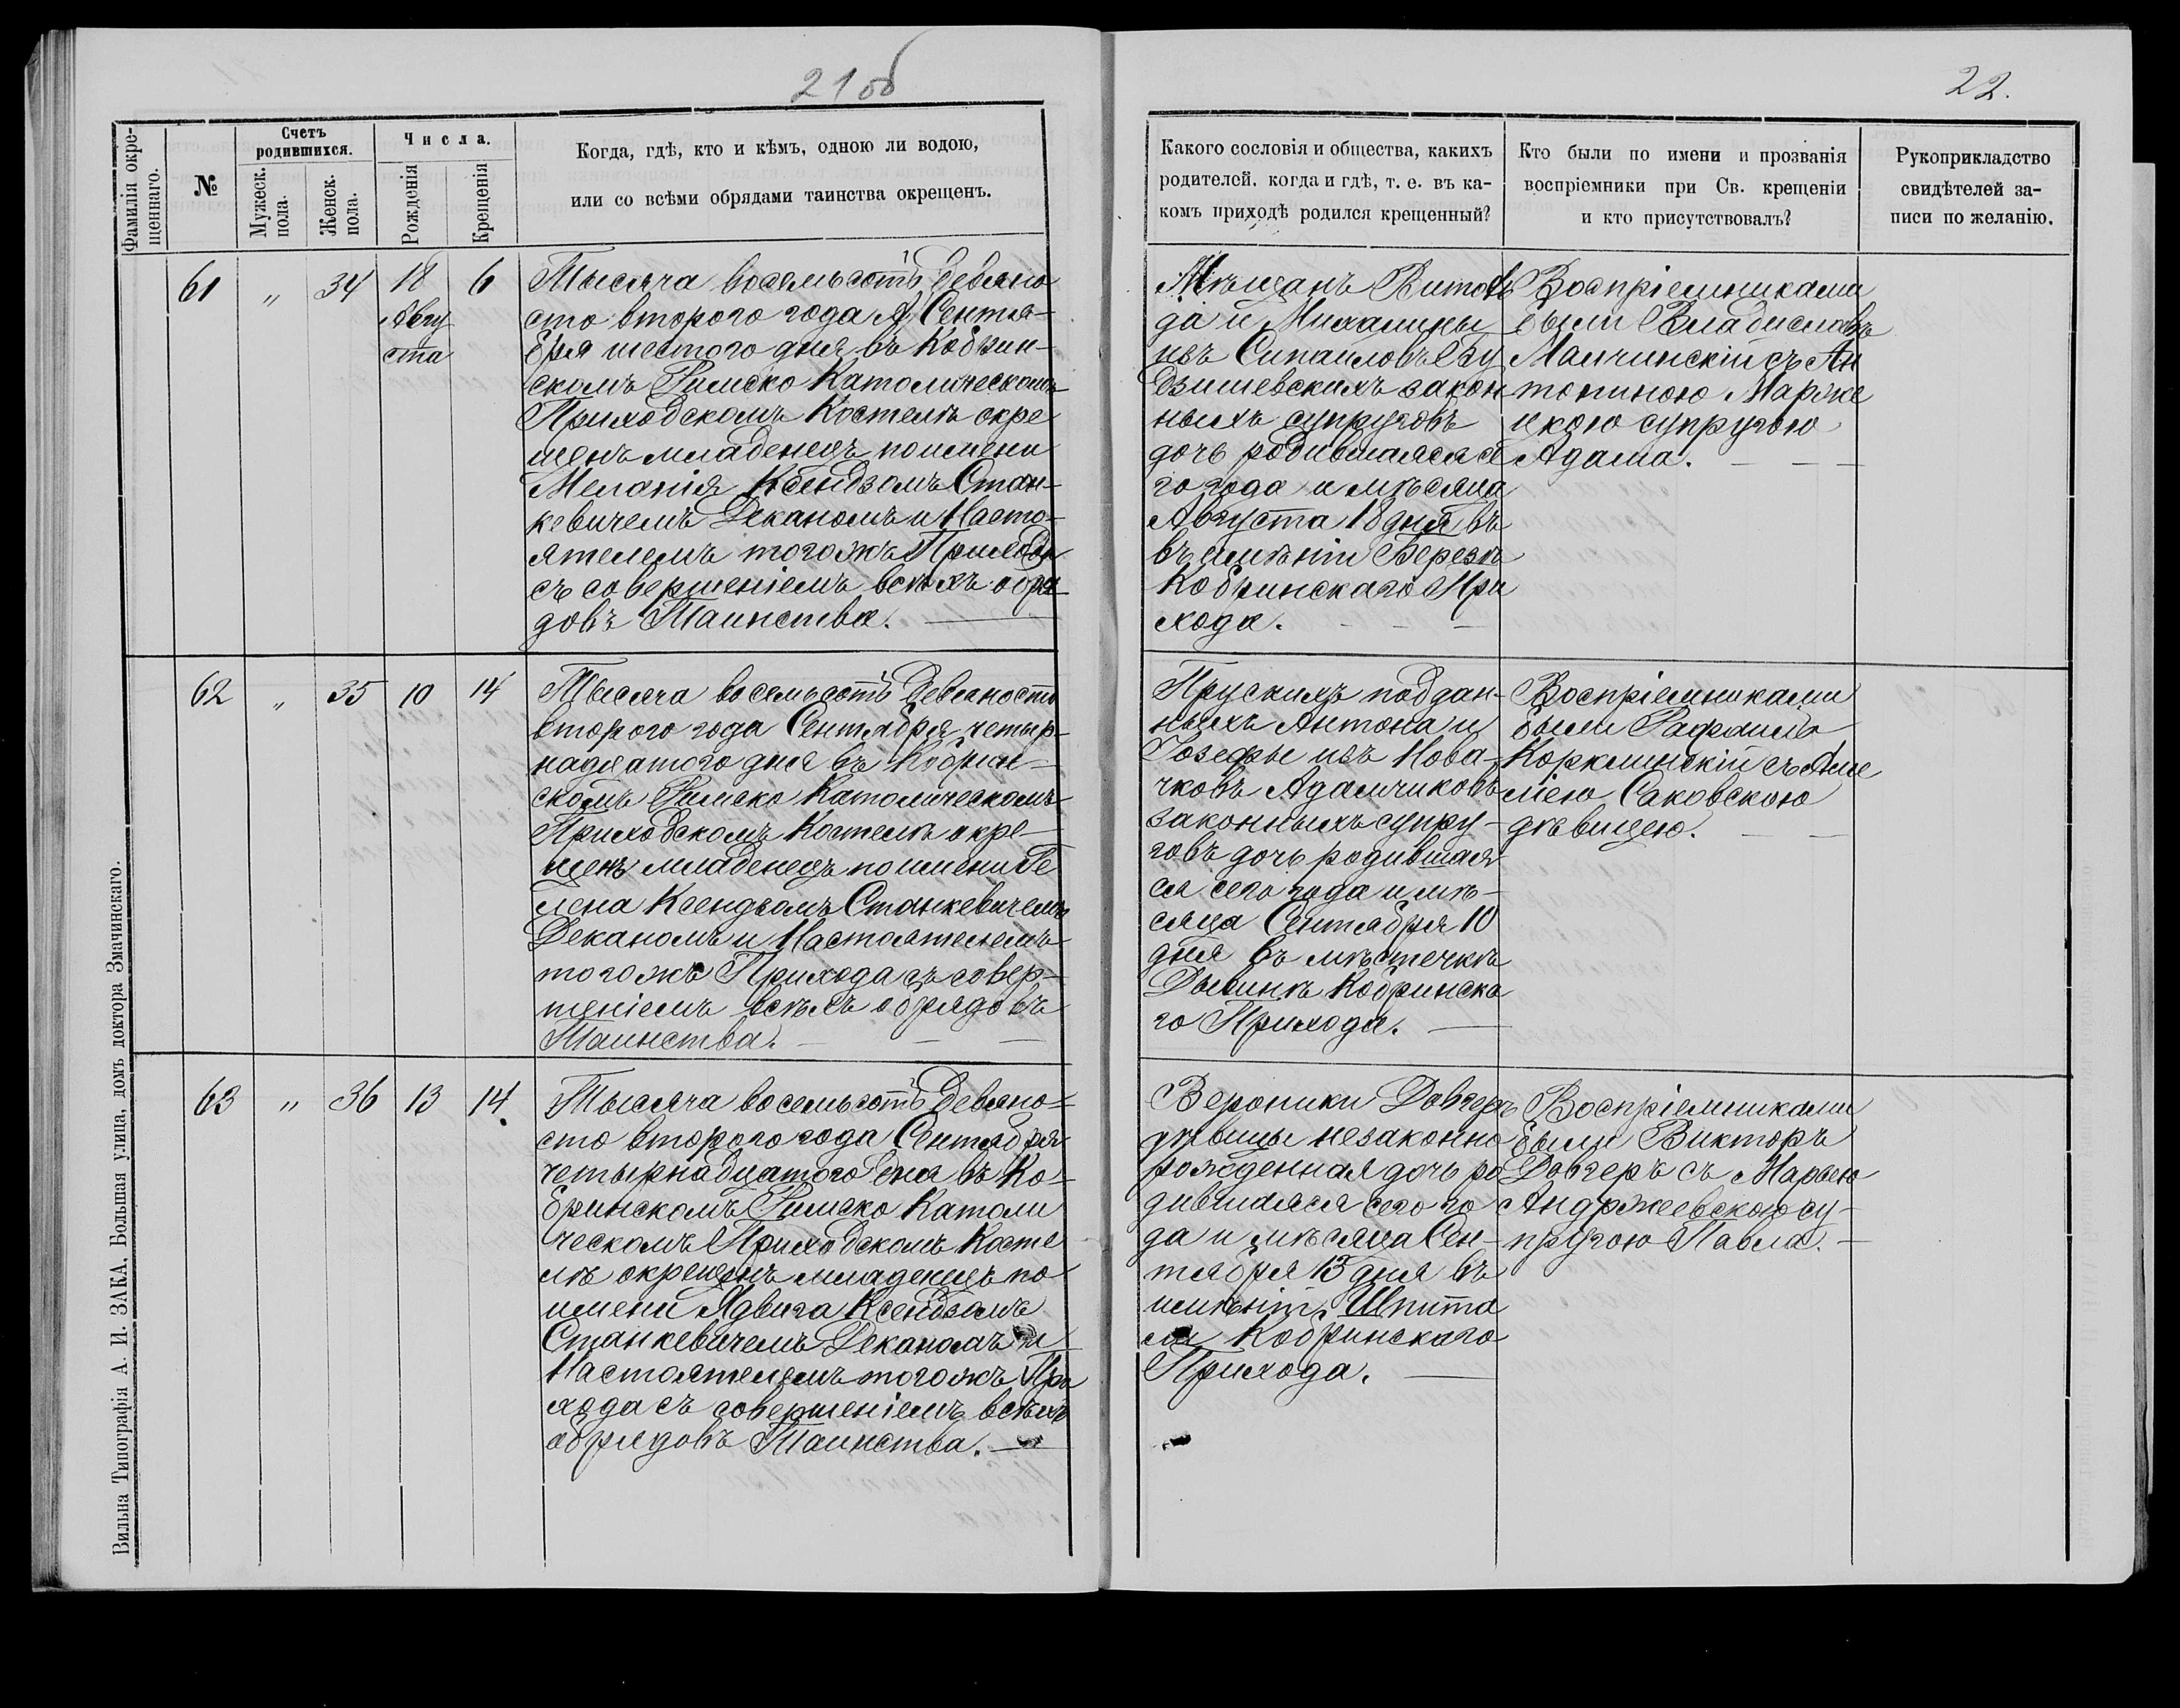 21 об
22.
Фамилія окре-
щеннаго.
№
Счетъ
родившихся.
Мужеск.
пола.
Женск.
пола.
Числа.
Рожденія
Крещенія
Когда, гдѣ, кто и кѣмъ, одною ли водою,
или со всѣми обрядами таинства окрещенъ.
Какого сословія и общества, какихъ
родителей. когда и гдѣ, т. е. въ ка-
комъ приходѣ родился крещенный?
Кто были по имени и прозванія
воспріемники при Св. крещеніи
и кто присутствовалъ?
Рукоприкладство
свидѣтелей за-
писи по желанію.
61 " 34 18 6
Авгу
ста
Тысяча восемьсотъ девяно
сто второго года Сентя-
бря шестого дня въ Кобрин-
скомъ Римско Католическомъ
Приходскомъ Костелѣ окре
щенъ младенецъ по имени
Меланія Ксендзомъ Стан-
кевичемъ Деканомъ и Насто-
ятелемъ того жъ Прихода
съ совершеніемъ всѣхъ обря
довъ Таинства.
Мѣщанъ Витоль
да и Михалины
изъ Сипайловъ
дзишевскихъ закон
ныхъ супруговъ
дочь родившаяся се
го года и мѣсяца
Августа 18 дня въ
въ имѣніи Березѣ
Кобринскаго При
хода.
Воспріемниками
были Владиславъ
Малчинскій съ Ан
тониною Марже
цкою супругою
Адама.
62 " 35 10 14
Тысяча восемьсотъ девяносто
второго года Сентября четыр-
надцатого дня въ Кобрин-
скомъ Римско Католическомъ
Приходскомъ Костелѣ окре-
щенъ младенецъ по имени Ге
лена Ксендзомъ Станкевичемъ
Деканомъ и Настоятелемъ
того жъ Прихода съ совер-
шеніемъ всѣхъ обрядовъ
Таинства.
Прускихъ поддан-
ныхъ Антона и
Іозефы изъ Нова-
чковъ Адамчиковъ
законныхъ супру-
говъ дочь родившая
ся сего года и мѣ-
сяца Сентября 10
дня въ мѣстечкѣ
Дывинѣ Кобринска
го Прихода.
Воспріемниками
были Рафаилъ
Корклинскій съ Аме
ліею Саковскою
дѣвицею.
63 " 36 13 14
Тысяча восемьсотъ девяно-
сто второго года Сентября
четырнадцатого дня въ Ко-
бринскомъ Римско Католи
ческомъ Приходскомъ Косте
лѣ окрещенъ младенецъ по
имени Ядвига Ксендзомъ
Станкевичемъ Деканомъ и
Настоятелемъ того жъ При
хода съ совершеніемъ всѣхъ
обрядовъ Таинства.
Вероники Довгеръ
дѣвицы незаконно
рожденная дочь ро
дившаяся сего го
да и мѣсяца Сен-
тября 13 дня въ
имѣніи Шпита
ли Кобринскаго
Прихода.
Воспріемниками
были Викторъ
Довгеръ съ Марьею
Андржеевскою су-
пругою Павла.
Вильна Типографія А. И. ЗАКА, Большая улица, домъ доктора Змачинскаго.